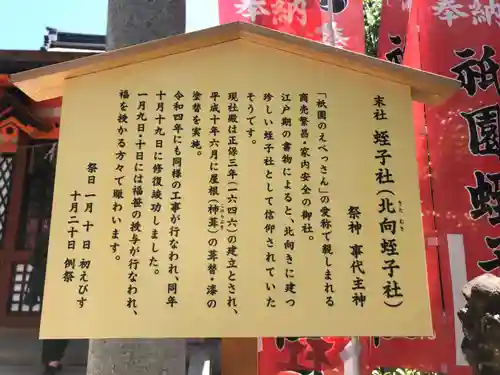 末社 蛭子社(北向蛭子社)
きた むき
祭神 事代主神
「祇園のえべっさん」の愛称で親しまれる
商売繁昌・家内安全の御社。
江戸期の書物によると、北向きに建つ
珍しい蛭子社として信仰されていた
そうです。
現社殿は正保三年(一六四六)の建立とされ、
平成十年六月に屋根(杮葺)の葺替・漆の
塗替を実施。
令和四年にも同様の工事が行なわれ、同年
十月十九日に修復竣功しました。
一月九日・十日には福笹の授与が行なわれ、
福を授かる方々で賑わいます。
祭日 一月十日 初えびす
十月二十日 例祭
奉納
奉納
祇園蛭子